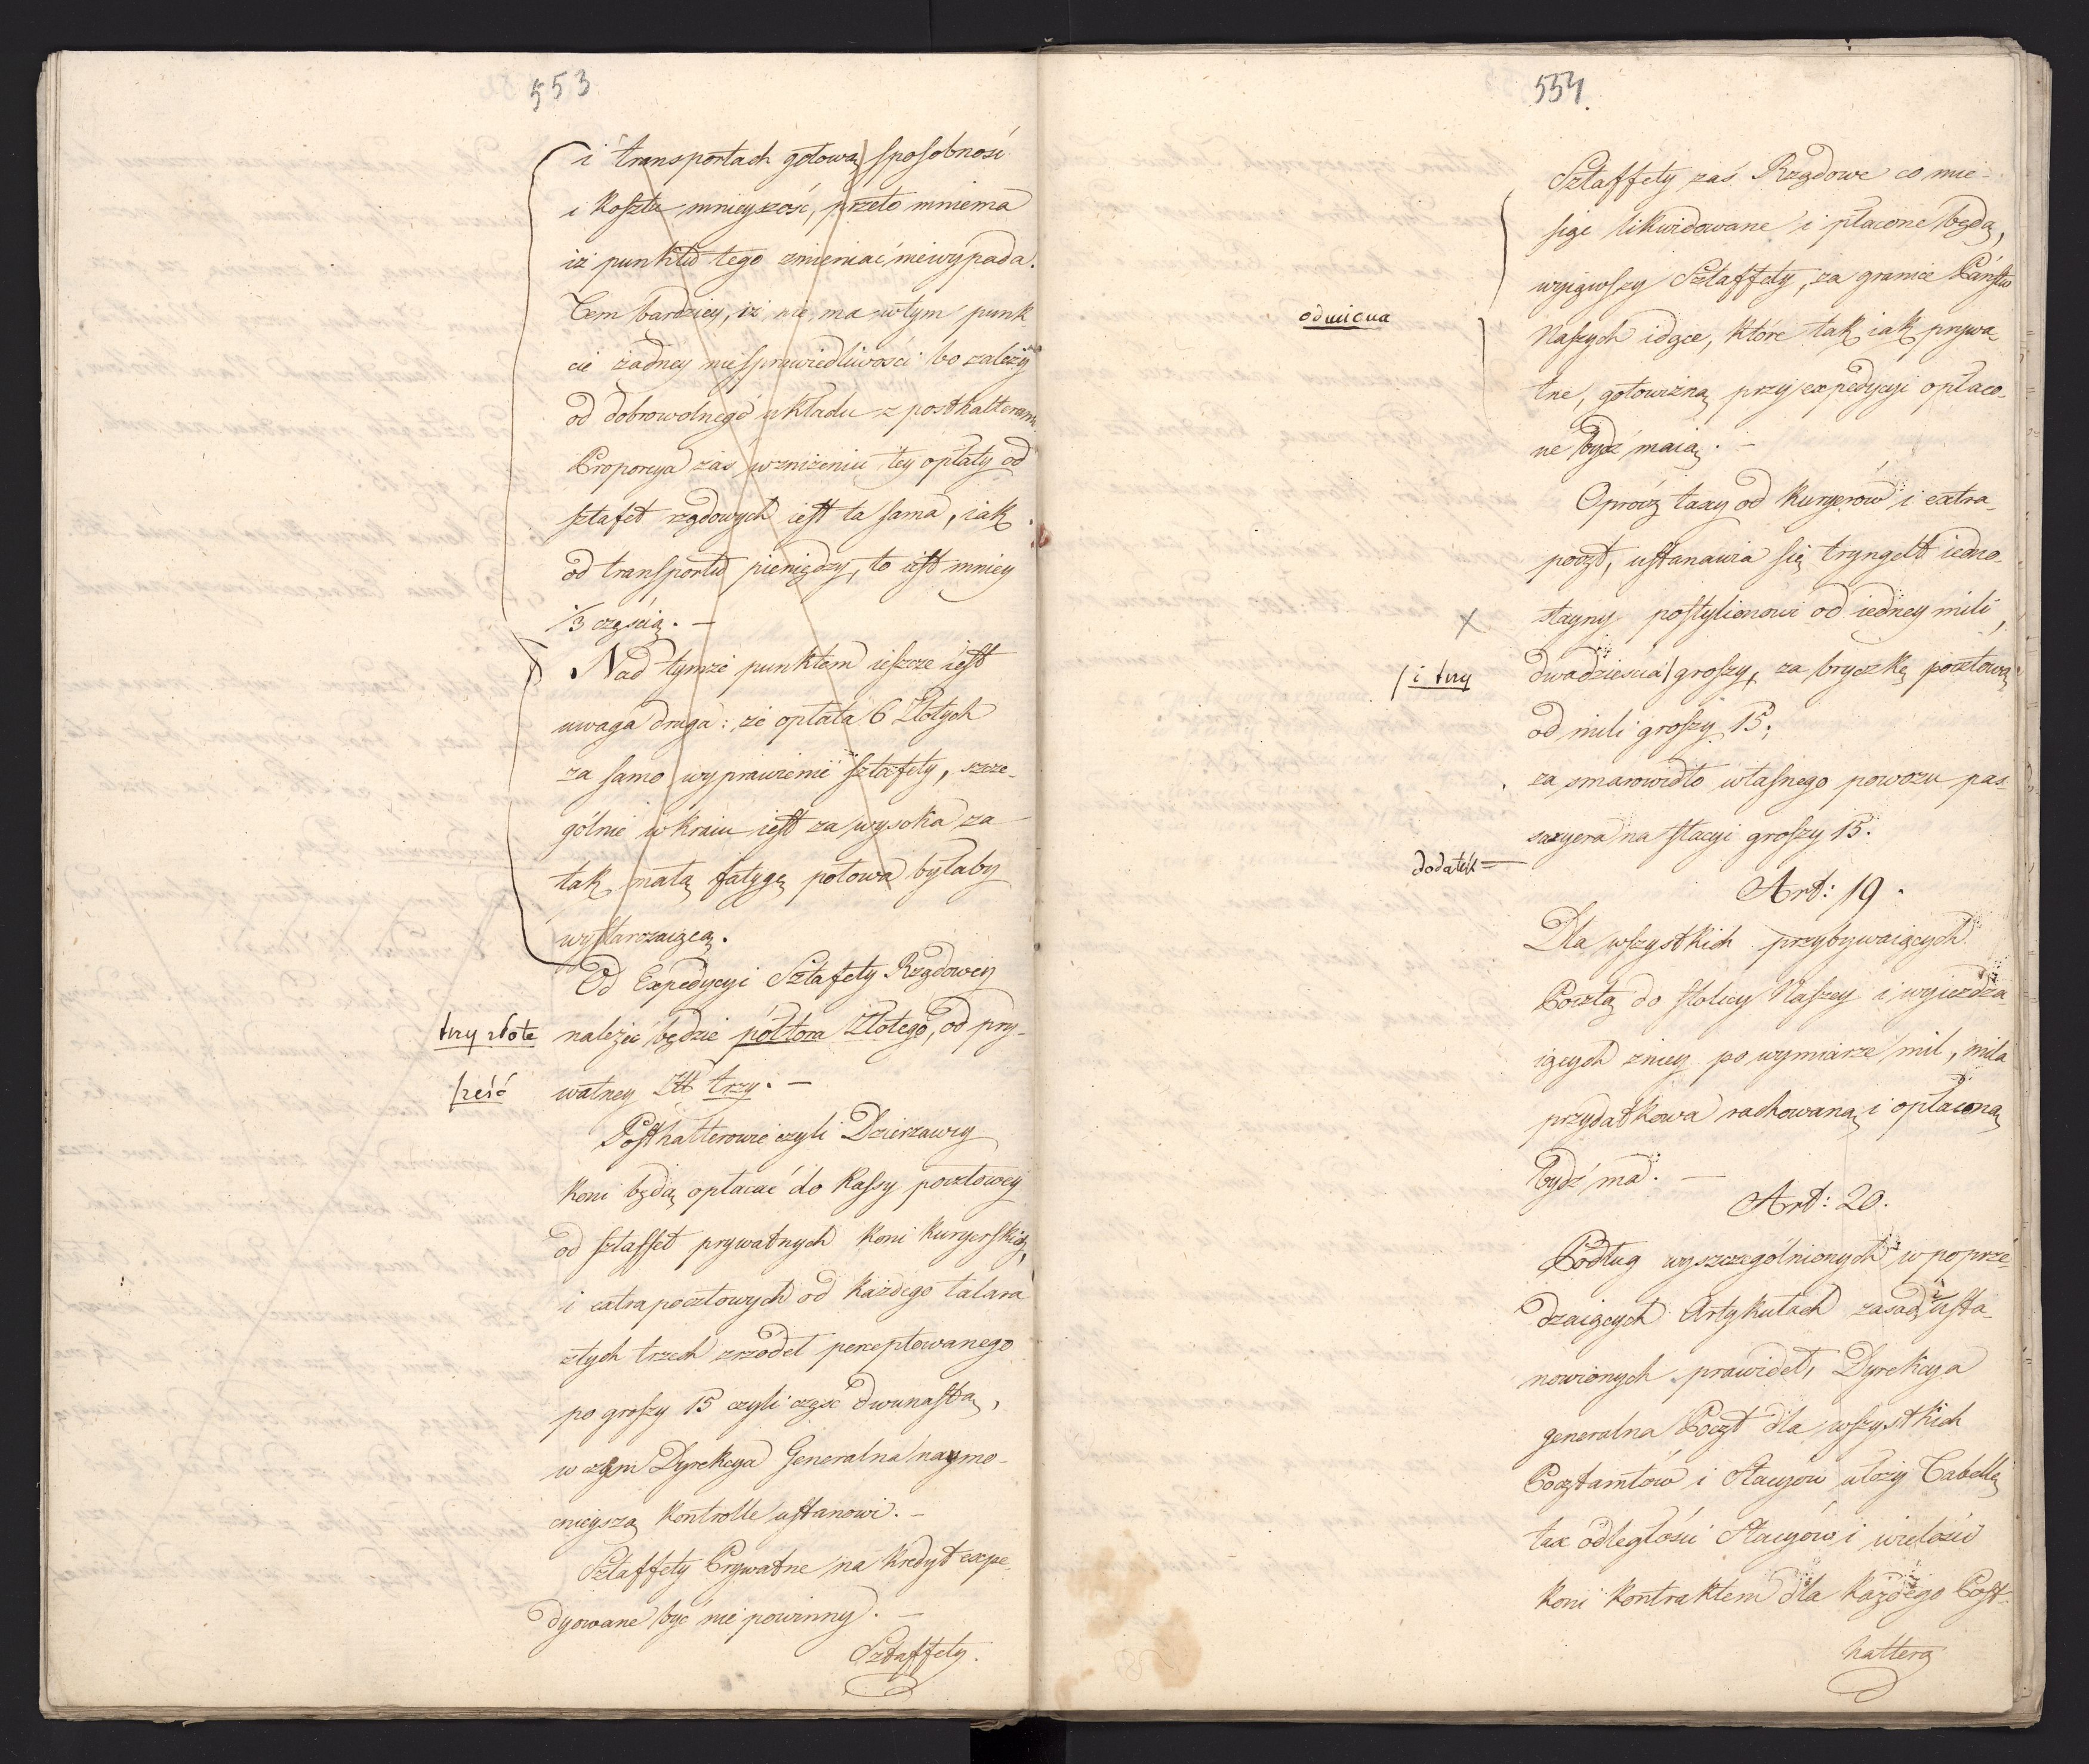 553
i transportach gotową sposobność
i kosztu mnieyszość, przeto mniema
iż punktu tego zmieniać niewypada.
Tem bardziey, iż nie ma w tym punk-
cie żadney niesprawiedliwości bo zależy
od dobrowolnego układu z posthalterami.
Proporcya zaś wzniżeniu tey opłaty od
sztafet rządowych iest ta sama, iak
od transportu pieniędzy, to iest mniey
1/3 częścią. —
Nad tymże punktem ieszcze iest
uwaga druga: że opłata 6 Złotych
za samo wyprawienie sztafety, szcze-
gólnie w kraiu iest za wysoka za
tak małą fatygę połowa byłaby
wystarczaiącą.
Od Expedycyi Sztafety Rządowey
trzy złote
należeć będzie półtora Złotego, od pry-
sześć
watney Złł trzy. —
Posthalterowie czyli Dzierzawcy
koni będą opłacać do Kassy pocztowey
od sztaffet prywatnych koni kuryerskich,
i extrapocztowych od każdego talara
z tych trzech zrzodeł perceptowanego
po groszy 15 czyli część dwunastą,
w czym Dyrekcya Generalna naymo-
cnieyszą kontrolle ustanowi. —
Sztaffety Prywatne na kredyt expe-
dyowane być nie powinny. —
Sztaffety.
554.
Sztaffety zaś Rządowe co mie-
siąc likwidowane i płacone będą,
wyiąwszy Sztaffety, za granice Państw
odmiana
Naszych idące, które tak iak prywa-
tne, gotowizną przy expedycyi opłaco-
ne bydź maią. —
Oprócz taxy od Kuryerów i extra-
poczt, ustanawia się tryngelt iedno-
stayny postylionowi od iedney mili,
/ i trzy
dwadzieścia / groszy, za bryczkę pocztową
od mili groszy 15;
za smarowidło własnego powozu pas-
sażyera na stacyi groszy 15.
dodatek =
Art: 19.
Dla wszystkich przybywaiących
Pocztą do stolicy Naszey i wyieżdza
iących zniey po wymiarze mil, mila
przydatkowa rachowaną i opłaconą
bydź ma. —
Art: 20.
Podług wyszczególnionych w poprze-
dzaiących Artykułach zasad, i usta-
nowionych prawideł, Dyrekcya
generalna Poczt dla wszystkich
Pocztamtów i Stacyow ułoży Tabellę
tax odległości Stacyów i wielość
koni kontraktem dla każdego Post-
haltera